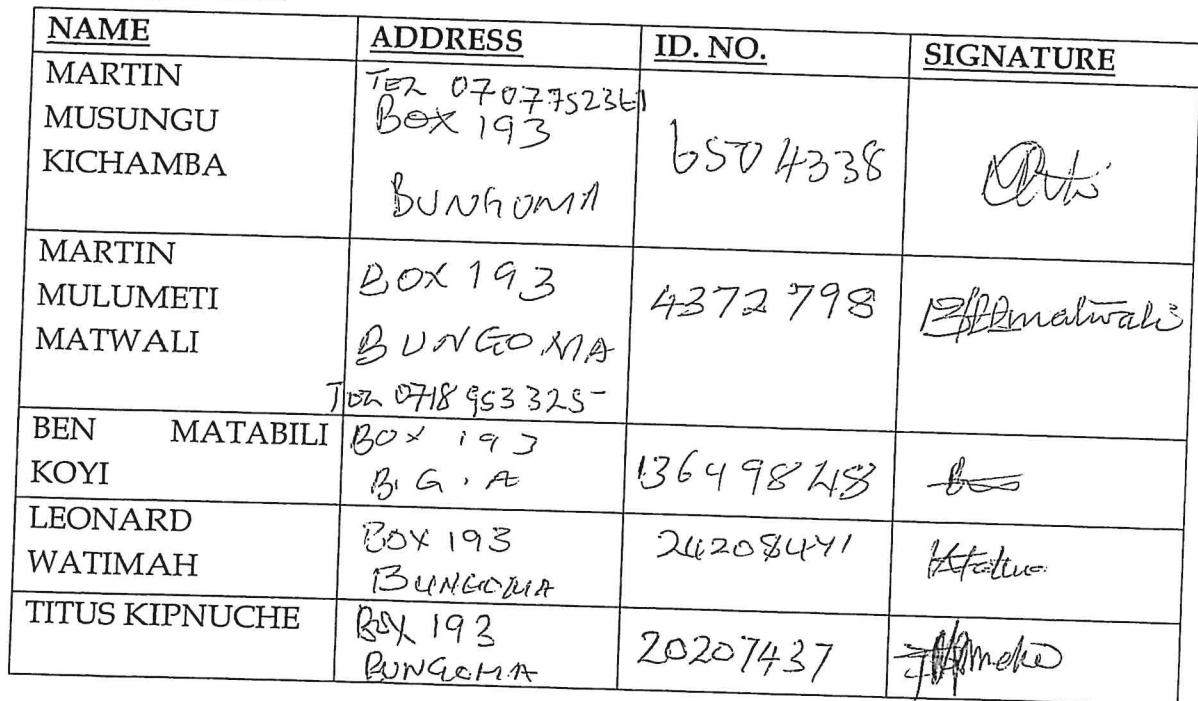 NAME ADDRESS ID. NO. SIGNATURE
MARTIN
MUSUNGU
KICHAMBA
TEL 0707752361
BOX 193
BUNGOMA
6504338
MARTIN
MULUMETI
MATWALI
BOX 193
BUNGOMA
TEL 0718 953 325
4372 798
BEN MATABILI
KOYI
BOX 193
B.G.A
13649848
LEONARD
WATIMAH
BOX 193
BUNGOMA
24208441
TITUS KIPNUCHE
BOX 193
BUNGOMA
20207437